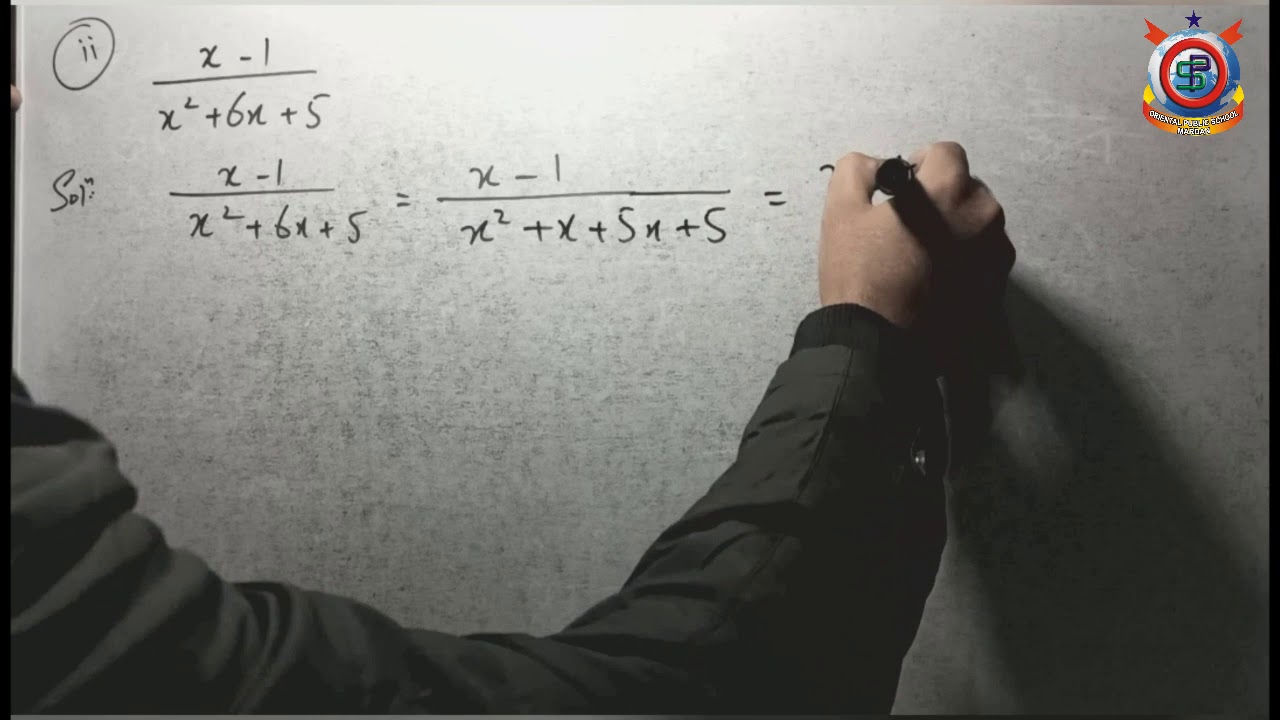 ii x - 1
x² + 6x + 5
Solⁿ: x - 1 = x - 1 = x
x² + 6x + 5 x² + x + 5x + 5
ORIENTAL PUBLIC SCHOOL
MARDAN